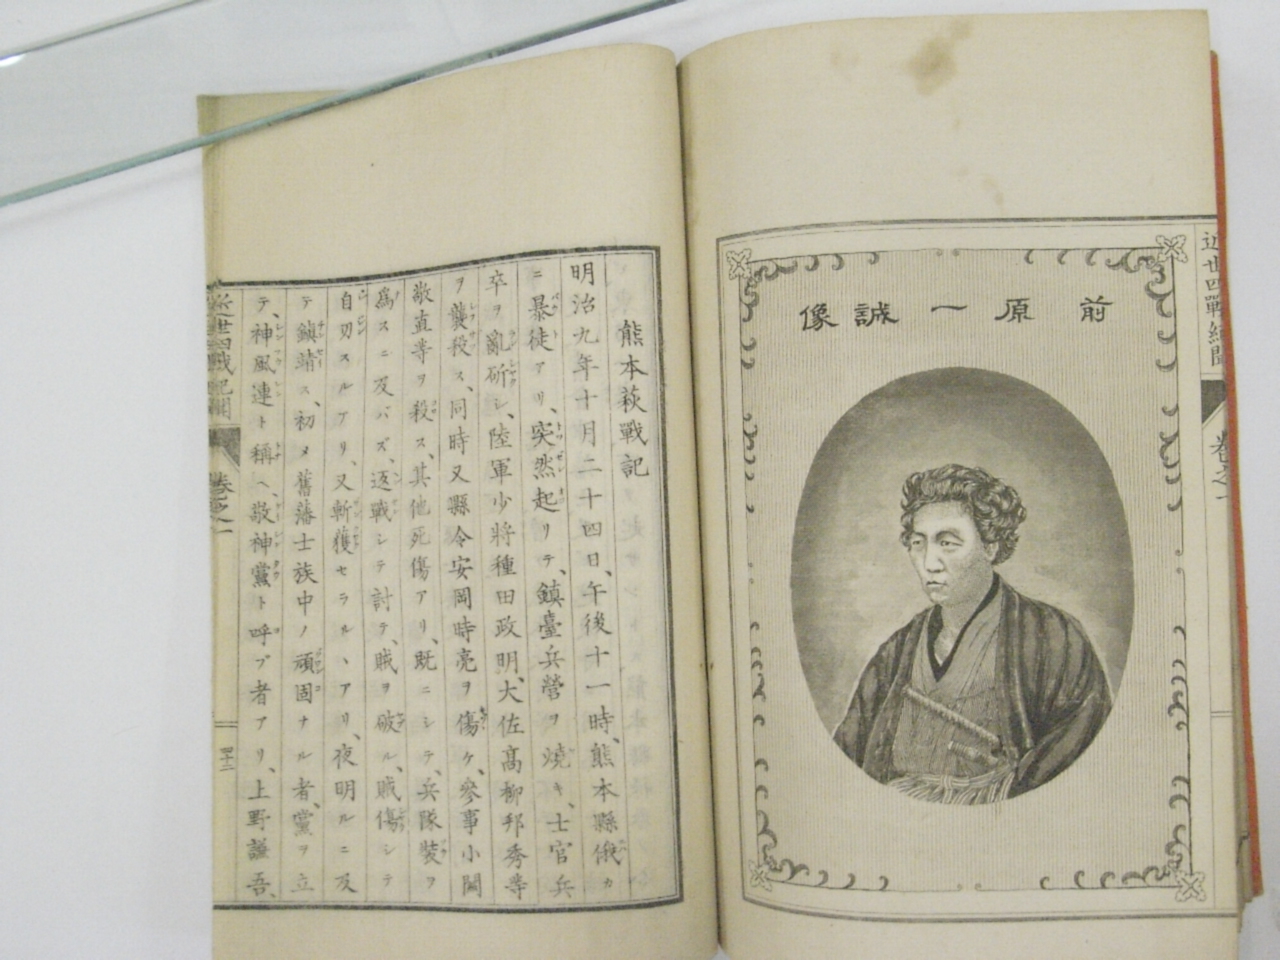 近世四戰紀聞
卷之一
前原一誠像
熊本萩戰記
明治九年十月二十四日、午後十一時、熊本縣俄カ
ニ暴徒アリ、突然起リテ、鎮臺兵營ヲ燒キ、士官兵
卒ヲ亂斫シ、陸軍少將種田政明、大佐高柳邦秀等
ヲ襲殺ス、同時又縣令安岡時亮ヲ傷ケ、參事小關
敬直等ヲ殺ス、其他死傷アリ、既ニシテ、兵隊裝ヲ
爲スニ及バズ、返戰シテ討テ、賊ヲ破ル、賊傷シテ
自刃スルアリ、又斬獲セラルヽアリ、夜明ルニ及
テ鎮靖ス、初メ舊藩士族中ノ頑固ナル者、黨ヲ立
テ、神風連ト稱ヘ、敬神黨ト呼ブ者アリ、上野謙吾、
近世四戰紀聞
卷之一
四十二